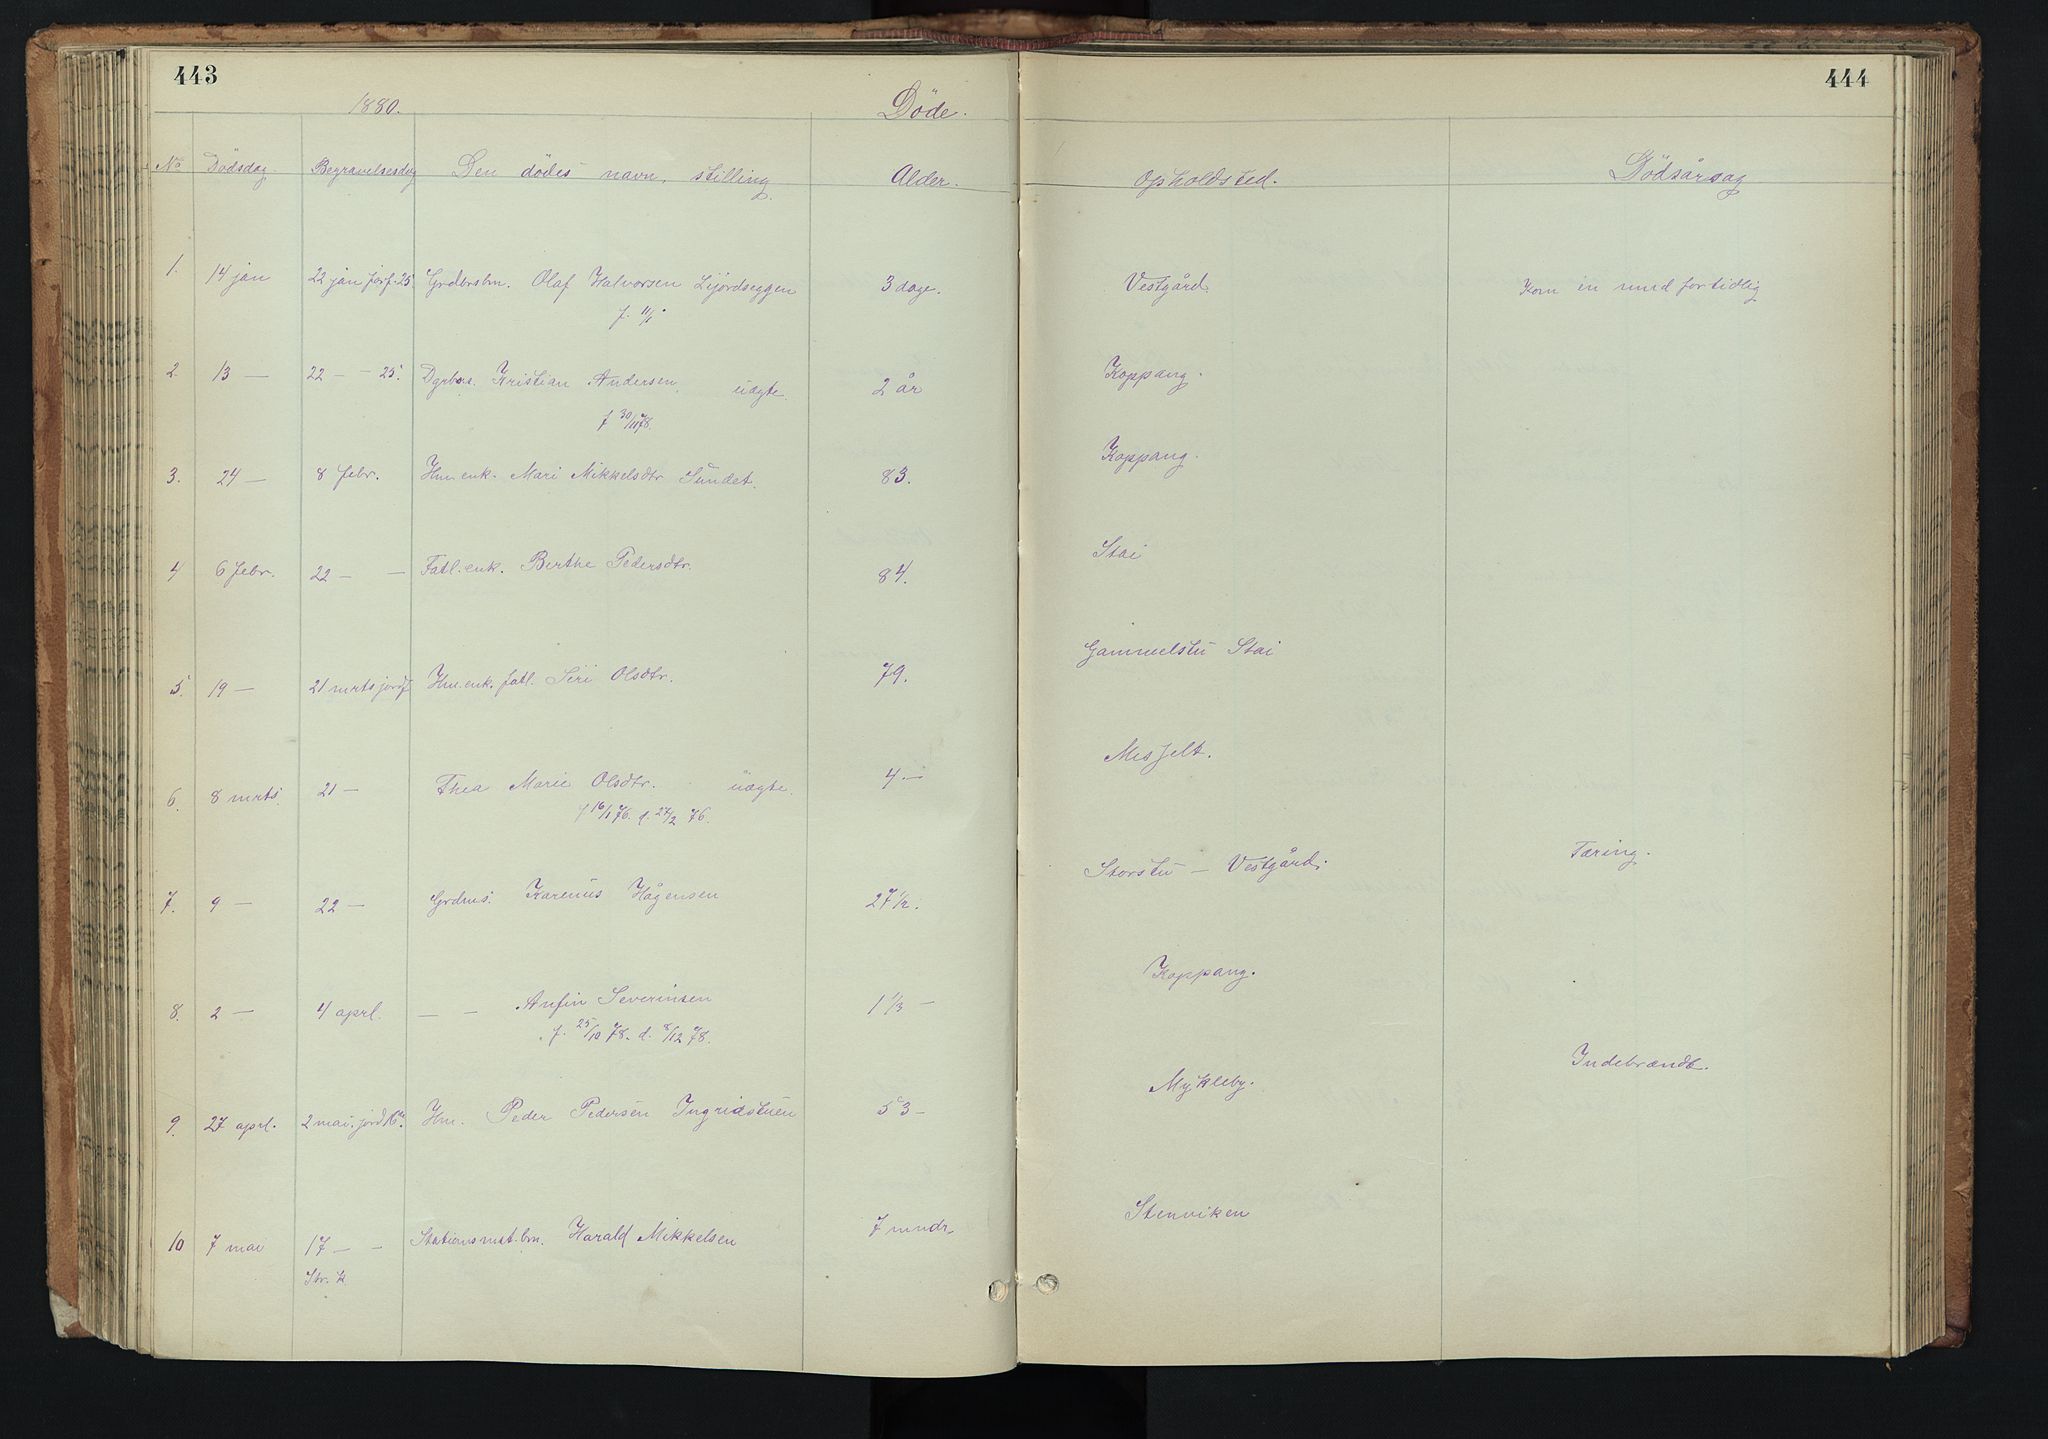 443
444
1880. Döde.
No Dödsdag. Begravelsesdag Den dödes navn, stilling. Alder. Opholdsted. Dödsårsag
1. 14 jan 22 jan jorf. 25. Grdbrsbn. Olaf Halvorsen Lijördseggen 3 dage. Vestgård. Kom en mnd for tidlig
f. 11/1
2. 13 — 22 — - 25. Kristian Andersen, uægte. 2 år Koppang.
f 30/11 78.
3. 24 — 8 febr. Hm.enk. Mari Mikkelsdtr Sundet. 83. Koppang.
4 6 febr. 22 — — Fatl. enk. Berthe Pedersdtr. 84. Stai
5. 19 — 21 mrts jordf. Hm.enk. fatl. Siri Olsdtr. 79. Gammelstu Stai
6. 8 mrts. 21 — Thea Marie Olsdtr. uægte. 4 — Messelt.
f 16/1 76. d. 27/2 76.
7. 9 — 22 — Grdms. Karenus Hågensen 27 1/2. Storstu — Vestgård. Tæring.
8. 2 — 4 aprl. — — Anfin Severinsen 1 1/3 — Koppang.
f. 25/10 78. d. 8/12 78.
9. 27 aprl. 2 mai. jord 16. Hm. Peder Pedersen Ingridstuen 53 — Mykleby. Indebrændt.
10 7 mai 17 — - Stationsmst.bn. Harald Mikkelsen 7 mndr. Stenviken
Str. k